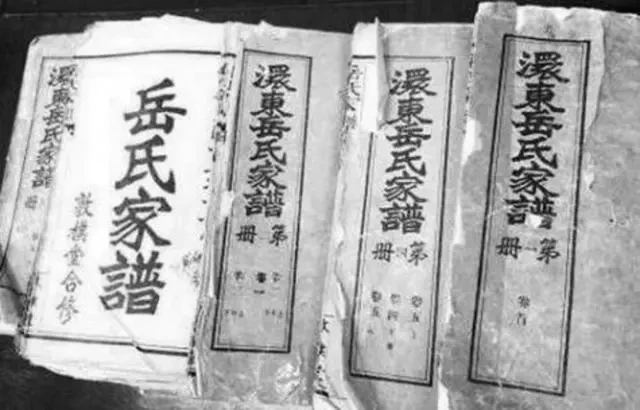 澴東岳氏家譜
岳氏家譜
堂合修
澴東岳氏家譜
第
册
澴東岳氏家譜
第四册
卷五
卷四
卷五
澴東岳氏家譜
第一册
卷首